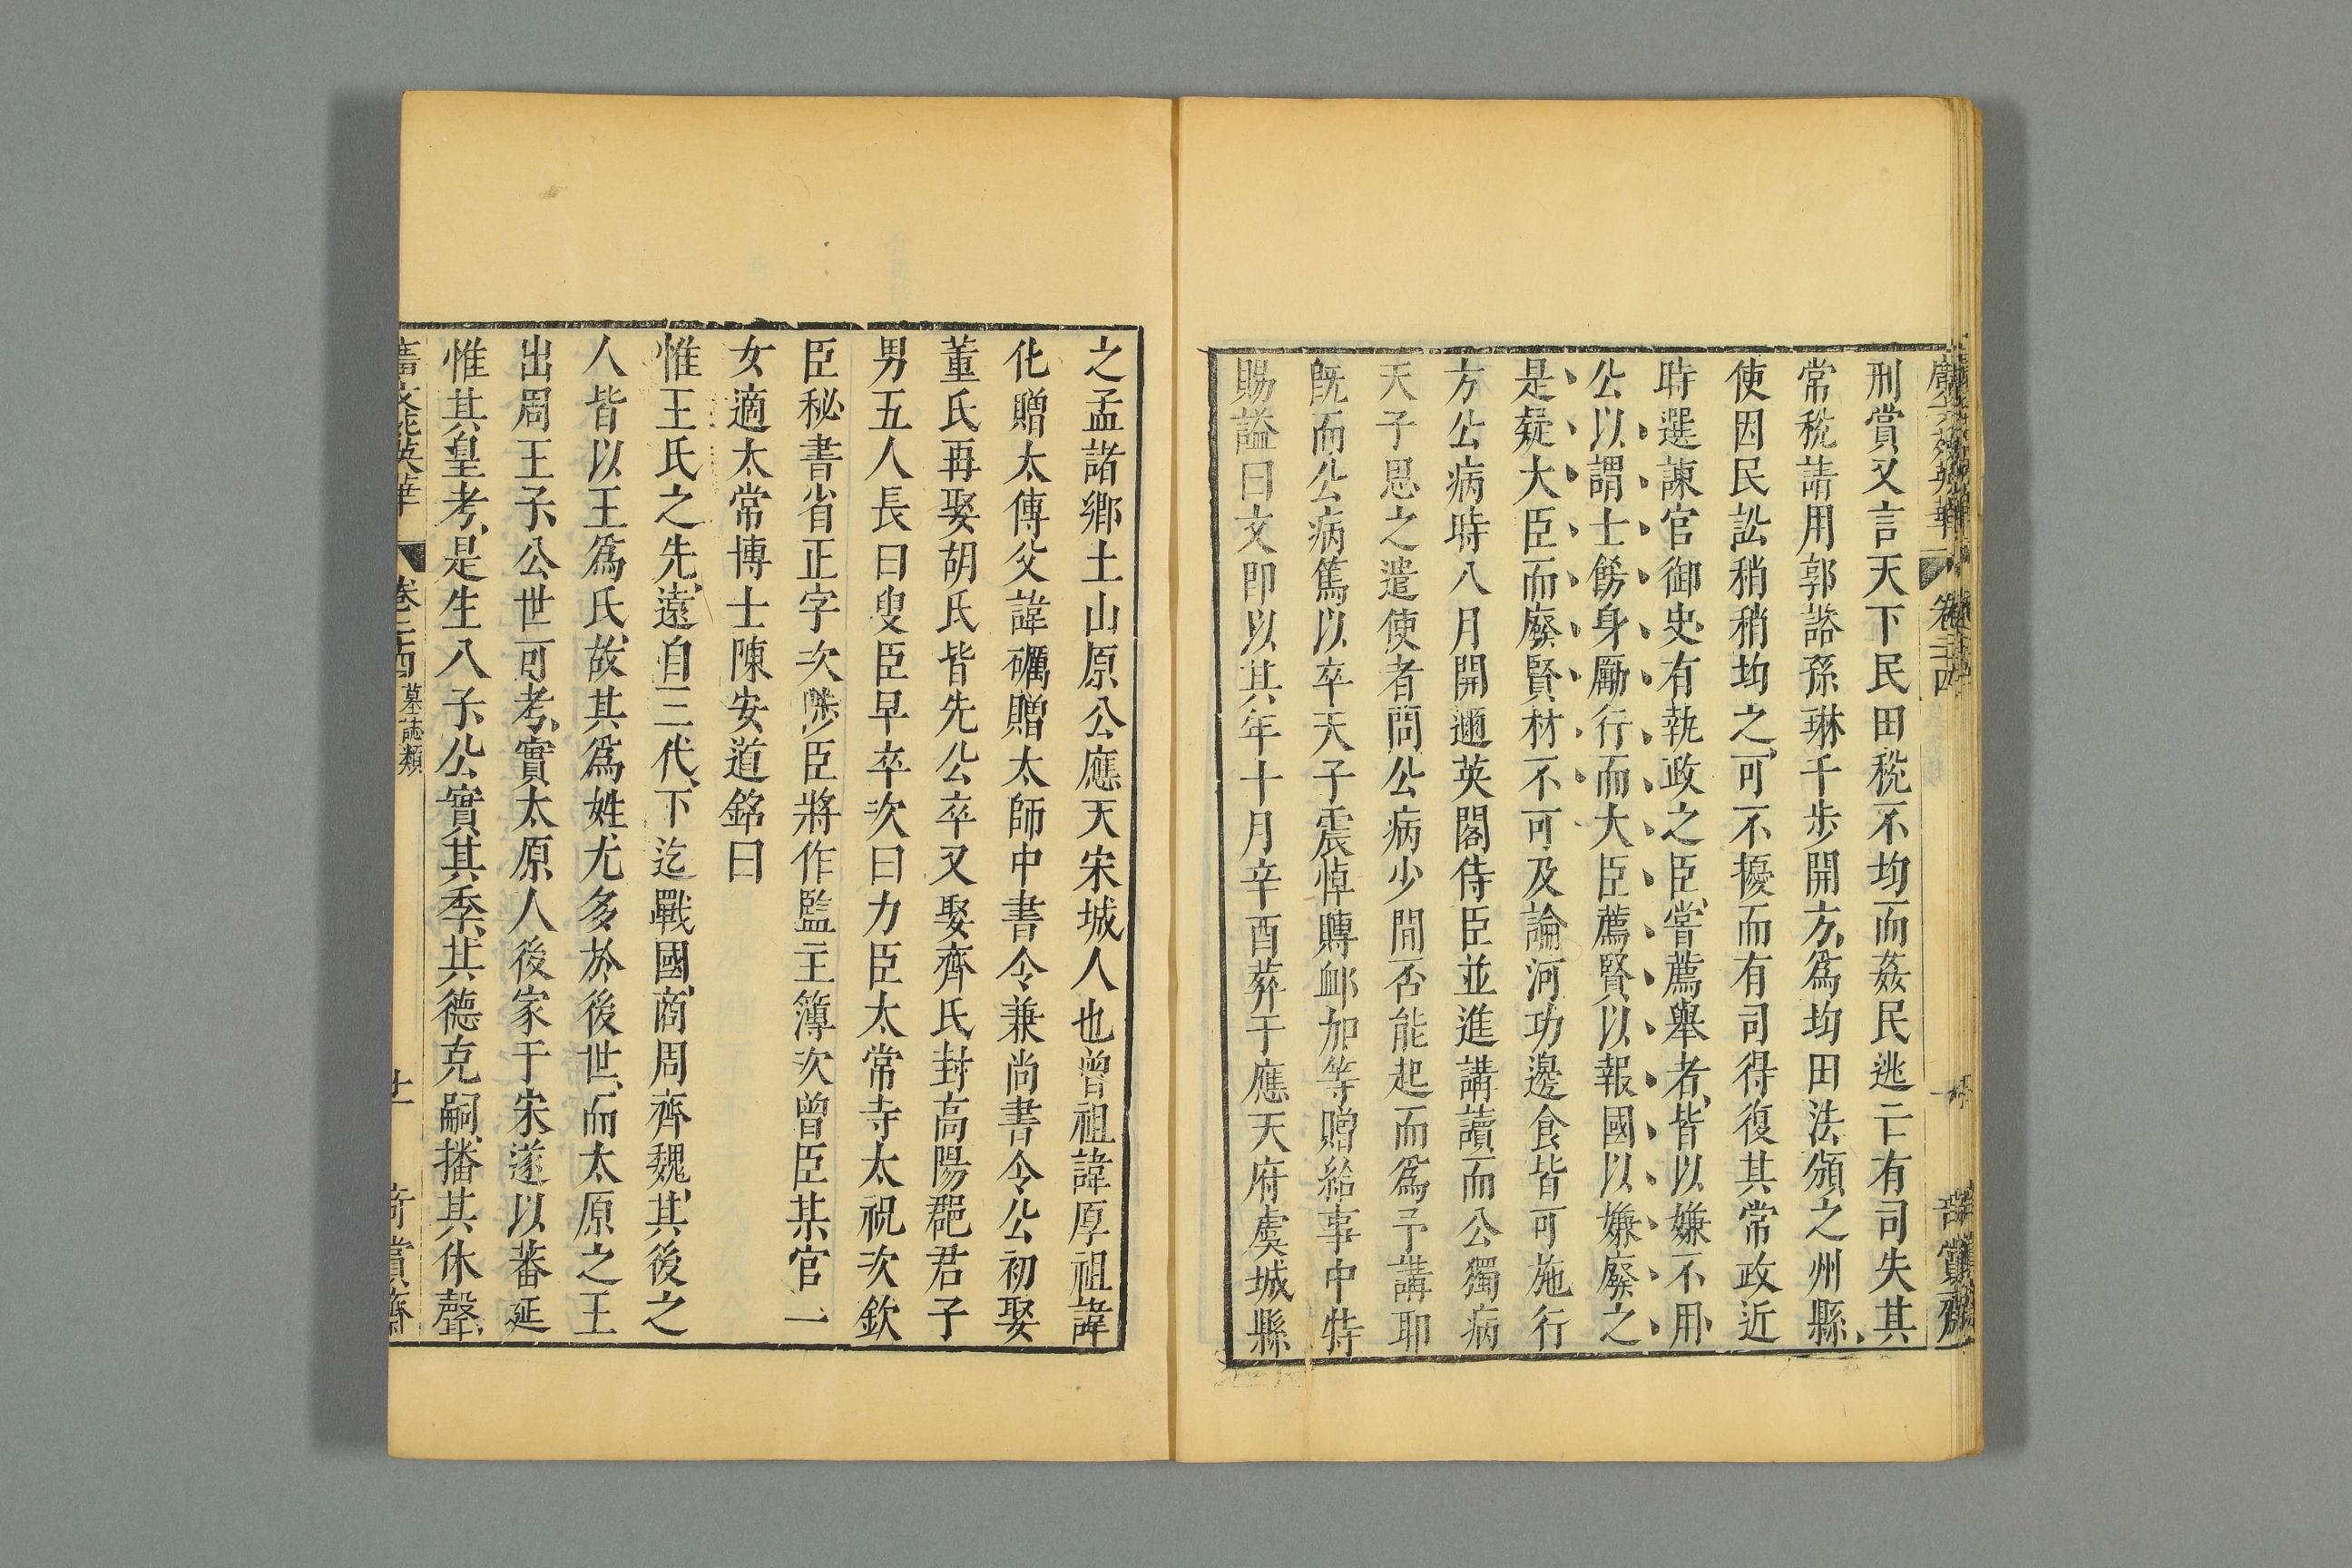 廣文苑英華 卷二十四
刑賞又言天下民田稅不均而姦民逃亡有司失其
常稅請用郭諮孫琳千步開方爲均田法頒之州縣
使因民訟稍稍均之可不擾而有司得復其常政近
時選諫官御史有執政之臣嘗薦舉者皆以嫌不用
公以謂士飭身勵行而大臣薦賢以報國以嫌廢之
是疑大臣而廢賢材不可及論河功邊食皆可施行
方公病時八月開邇英閣侍臣並進講讀而公獨病
天子思之遣使者問公病少間否能起而爲予講耶
既而公病篤以卒天子震悼賻卹加等贈給事中特
賜謚曰文即以其年十月辛酉葬于應天府虞城縣
之孟諸鄉土山原公應天宋城人也曾祖諱厚祖諱
化贈太傅父諱礪贈太師中書令兼尚書令公初娶
董氏再娶胡氏皆先公卒又娶齊氏封高陽郡君子
男五人長曰叟臣早卒次曰力臣太常寺太祝次欽
臣秘書省正字次陟臣將作監主簿次曾臣某官一
女適太常博士陳安道銘曰
惟王氏之先遠自三代下迄戰國商周齊魏其後之
人皆以王爲氏故其爲姓尤多於後世而太原之王
出周王子公世可考實太原人後家于宋遂以蕃延
惟其皇考是生八子公實其季其德克嗣播其休聲
廣文苑英華 卷二十四 墓誌類